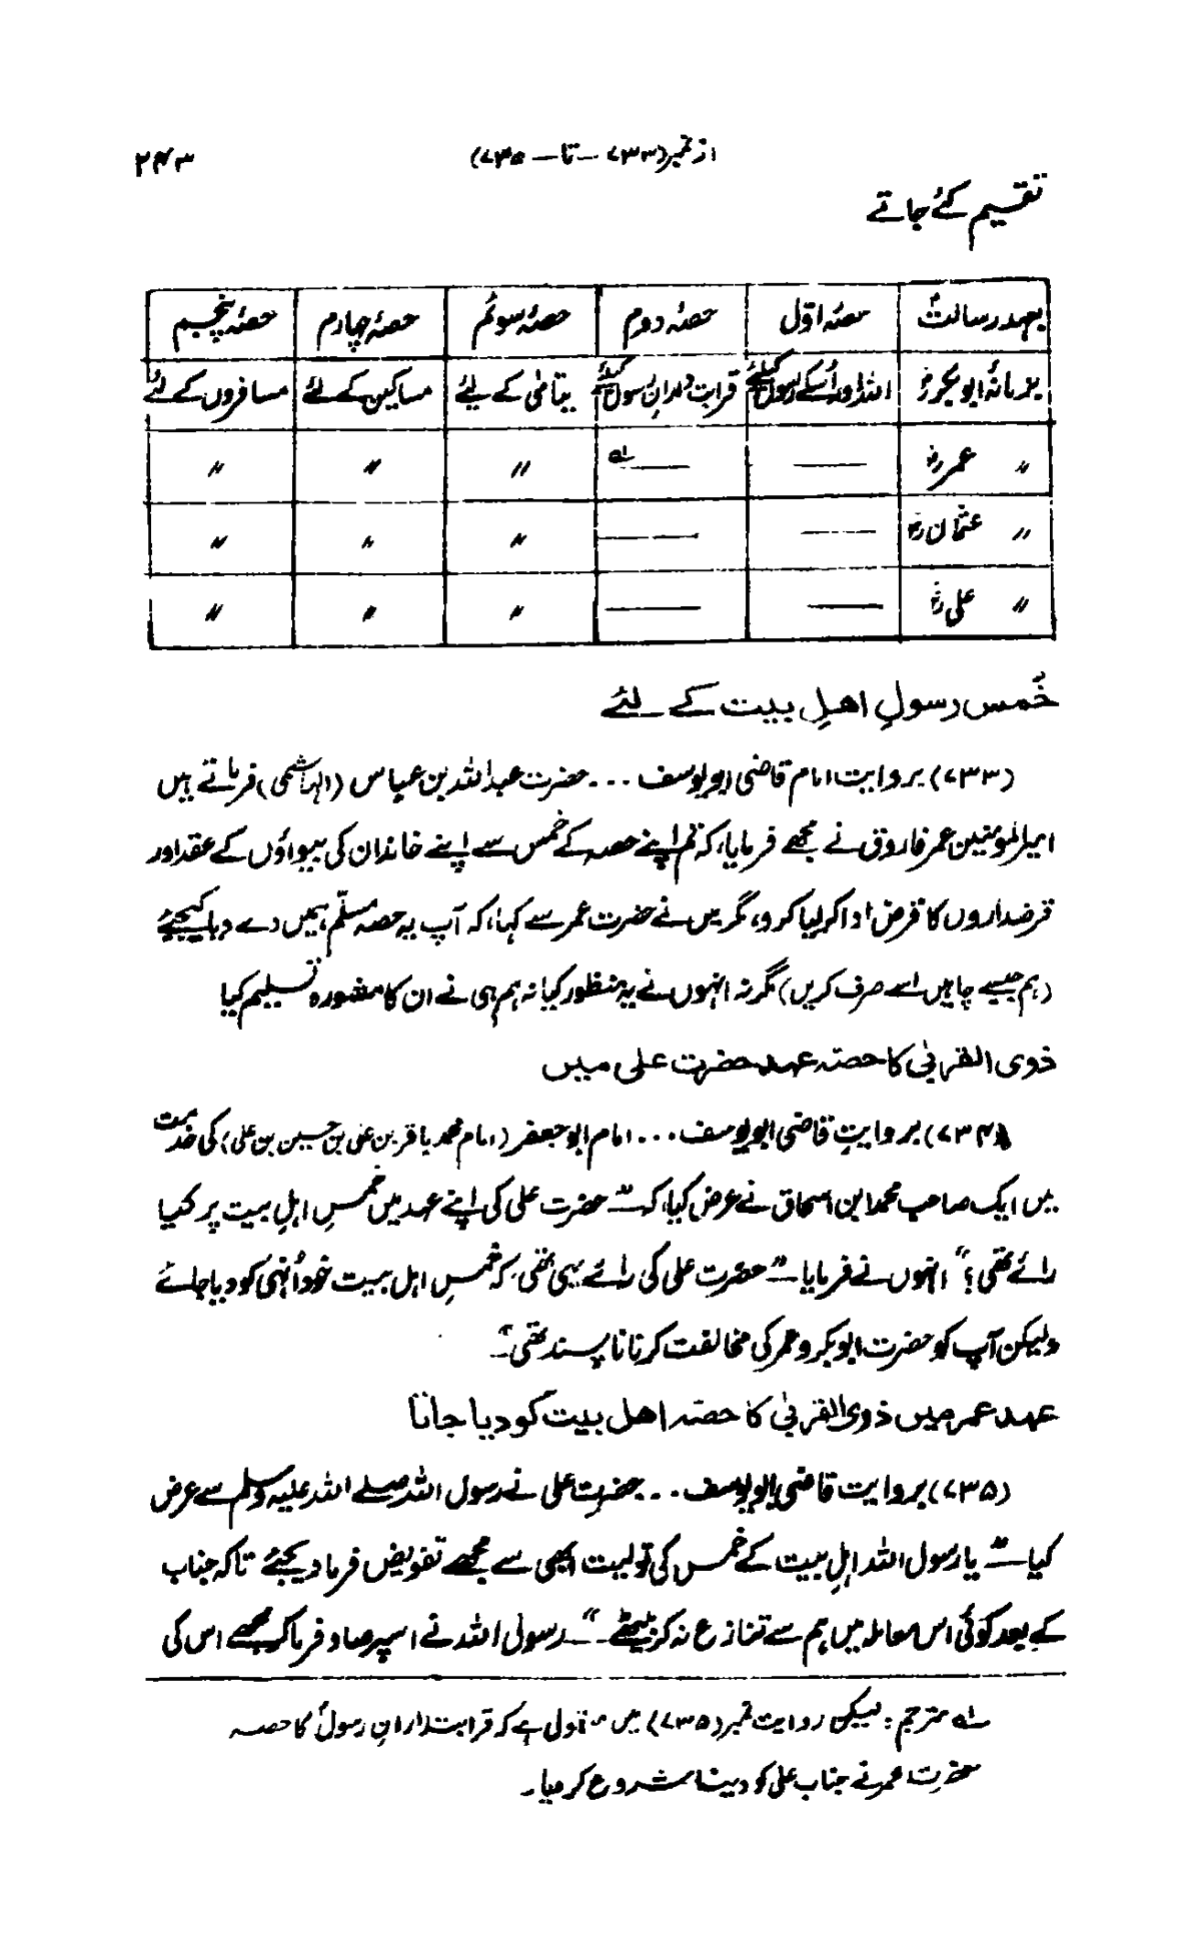 از نمبر (۷۳۳ - تا - ۷۳۵) ۲۴۳
تقسیم کئے جاتے
بعہد رسالتؐ | حصہ اوّل | حصۂ دوم | حصۂ سوئم | حصۂ چہارم | حصۂ پنجم
بزمانۂ ابوبکرؓ | اللہ اور اُسکے رسول کیلئے | قرابت داران رسول کیلئے | یتامٰی کے لئے | مساکین کے لئے | مسافروں کے لئے
〃 عمرؓ | —— | ——؎۱ | 〃 | 〃 | 〃
〃 عثمانؓ | —— | —— | 〃 | 〃 | 〃
〃 علیؓ | —— | —— | 〃 | 〃 | 〃
خُمس رسولِ اھلِ بیت کے لئے
(۷۳۳) بروایت امام قاضی ابو یوسف ... حضرت عبداللہ بن عباس (الہاشمی) فرماتے ہیں
امیر المؤمنین عمر فاروق نے مجھے فرمایا، کہ تم اپنے حصہ کے خمس سے اپنے خاندان کی بیواؤں کے عقد اور
قرضداروں کا قرض ادا کر لیا کرو، مگر میں نے حضرت عمر سے کہا، کہ آپ یہ حصہ مسلّم ہمیں دے دیا کیجئے
(ہم جیسے چاہیں اسے صرف کریں) مگر نہ انہوں نے یہ منظور کیا نہ ہم ہی نے ان کا مشورہ تسلیم کیا
ذوی القربٰی کا حصّہ عہد حضرت علی میں
(۷۳۴) بروایتِ قاضی ابو یوسف ... امام ابو جعفر (امام محمد باقر بن علی بن حسین بن علی) کی خدمت
میں ایک صاحب محمد ابن اسحاق نے عرض کیا، کہ — ”حضرت علی کی اپنے عہد میں خمسِ اہلِ بیت پر کیا
رائے تھی؟“ انہوں نے فرمایا — ”حضرت علی کی رائے یہی تھی، کہ خمسِ اہل بیت خود اُنہی کو دیا جائے
ولیکن آپ کو حضرت ابوبکر و عمر کی مخالفت کرنا نا پسند تھی“۔
عہد عمر میں ذوی القربٰی کا حصّہ اھل بیت کو دیا جانا
(۷۳۵) بروایت قاضی ابو یوسف ... حضرت علی نے رسول اللہ صلے اللہ علیہ وسلم سے عرض
کیا — ”یا رسول اللہ اہلِ بیت کے خمس کی تولیت ابھی سے مجھے تفویض فرما دیجئے تاکہ جناب
کے بعد کوئی اس معاملہ میں ہم سے تنازع نہ کر بیٹھے۔“ — رسول اللہ نے اسپر صاد فرما کر مجھے اس کی
؎۱ مترجم: لیکن روایت نمبر (۷۳۵) میں منقول ہے کہ قرابتدارانِ رسولؐ کا حصہ
حضرت عمر نے جناب علی کو دینا شروع کر دیا۔